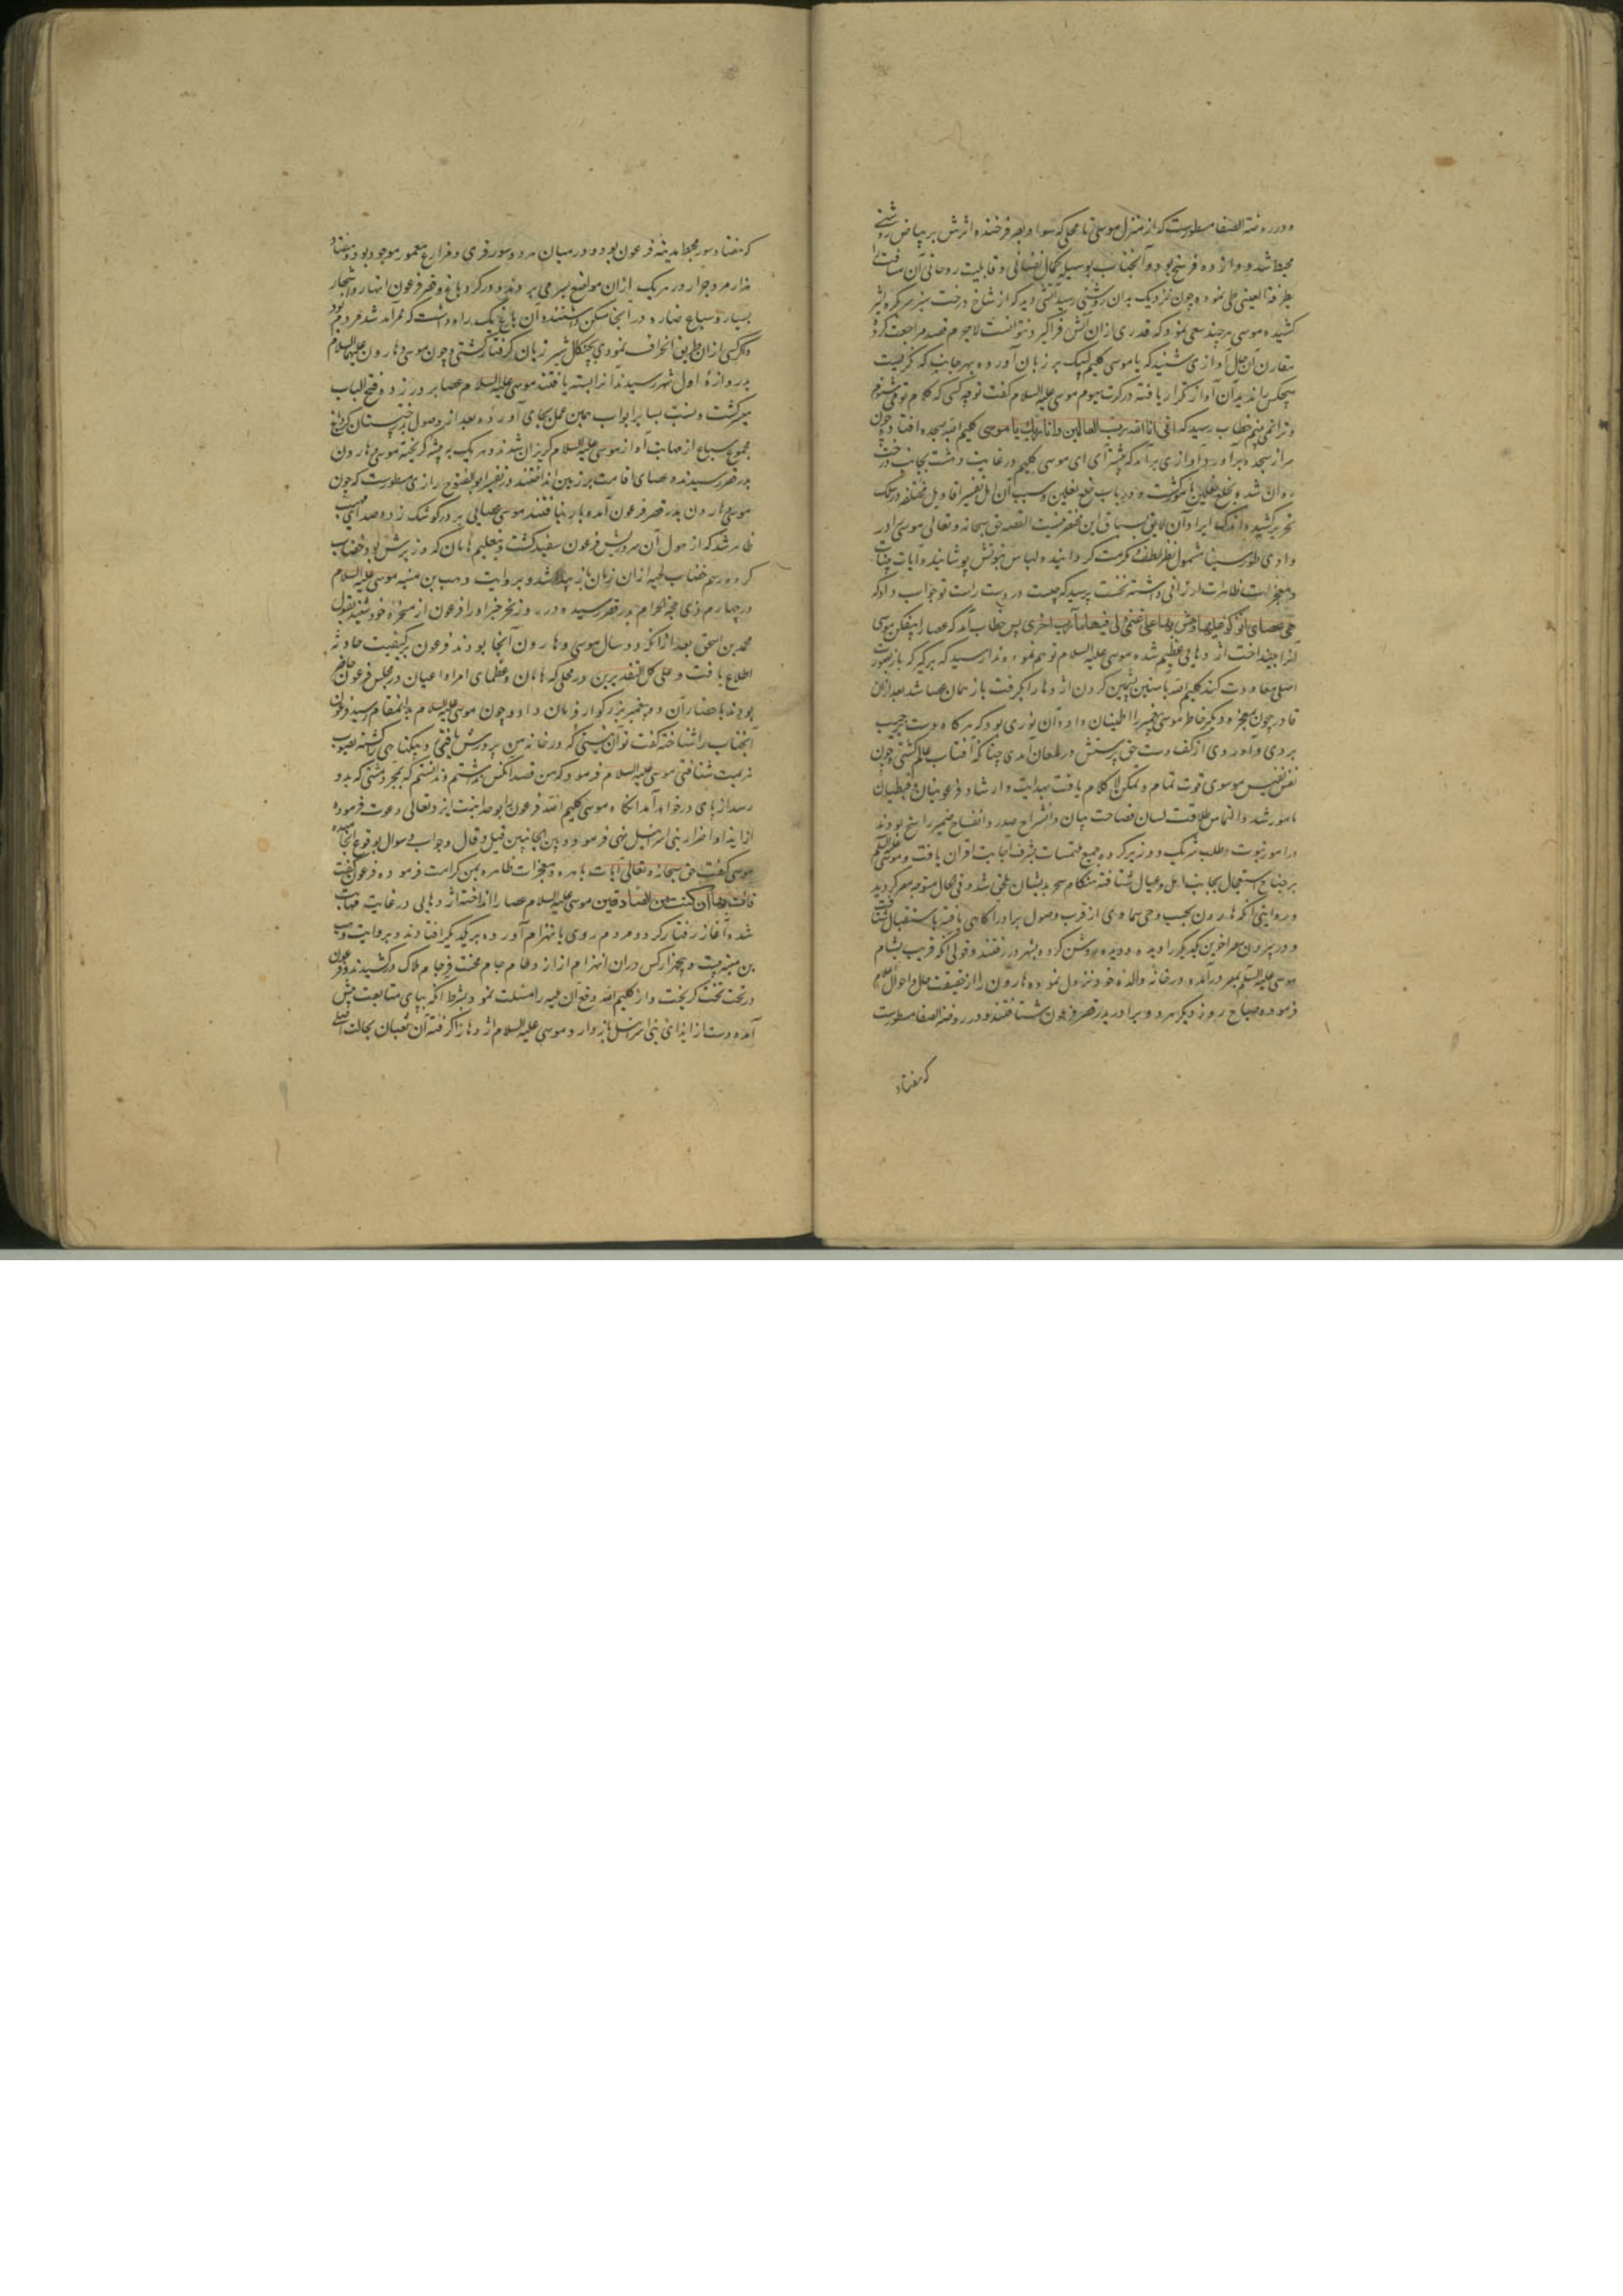 و در روضة الصفا مسطورست که از منزل موسی تا محلی که سواد بصر فرخنده اثرش بر بیاض روشنی
محیط شد دوازده فرسخ بود و آنجناب بوسیله کمال نفسانی و قابلیت روحانی آن مسافت را
بطرفة العینی طی نموده چون نزدیک بدان روشنی رسید آتشی دید که از شاخ درخت سبز سر بکره اثیر
کشیده موسی هر چند سعی نمود که قدری از ان آتش فراگیرد نتوانست لاجرم قصد مراجعت کرد
مقارن آن حال آوازی شنید که یا موسی کلیم لبیک بر زبان آورده بهر جانب که نگریست
هیچکس را ندید آن آواز تکرار یافته در کرت سیوم موسی علیه السلام گفت تو چه کسی که کلام تو می شنوم
و ترا نمی بینم خطاب رسید که انی انا الله رب العالمین وانا ربک یا موسی کلیم الله بسجده افتاد و چون
سر از سجده برآورد آوازی برآمد که پیشتر آی ای موسی کلیم در غایت دهشت بجانب درخت
روان شده بخلع نعلین مامور گشت و در باب خلع نعلین و سبب آن اهل تفسیر اقاویل مختلفه در سلک
تحریر کشیده اند که ایراد آن لایق سیاق این مختصر نیست القصه حق سبحانه و تعالی موسی را در
وادی طور سینا مشمول نظر لطف و مکرمت گردانیده و لباس نبوتش پوشانید و آیات بینات
و معجزات ظاهرات ارزانی داشته نخست پرسید که چیست در دست راست تو جواب داد که
هی عصای اتوکؤ علیها واهش بها علی غنمی ولی فیها مآرب اخری پس خطاب آمد که عصا را بیفکن موسی
آنرا بینداخت اژدهایی عظیم شده موسی علیه السلام توهم نموده ندا رسید که برگیر که باز بصورت
اصلی معاودت کند کلیم الله باستین گردن اژدها را بگرفت باز همان عصا شد بعد از ان
قادر بیچون بمعجزه دیگر خاطر موسی پیغمبر را اطمینان داد و آن نوری بود که هر گاه دست بجیب
بردی و آوردی از کف دست حق پرستش در لمعان آمدی چنانکه آفتاب عالم گشتی و چون
نفس نفیس موسوی قوت تمام و تمکن لا کلام یافت بهدایت و ارشاد فرعونیان و قبطیان
مامور شد و التماس طلاقت لسان فصاحت بیان و انشراح صدر و انفساح ضمیر
در امور نبوت و طلب شریک و وزیر کرده جمیع ملتمسات بشرف اجابت اقتران یافت و موسی علیه السلم
بر جناح استعجال بجانب اهل و عیال شتافته هنگام سحر بدیشان ملحق شد و فی الحال متوجه مصر گردید
و روایتی آنکه هارون بحسب وحی سماوی از قرب وصول برادر آگاهی یافته باستقبال شتافت
و در بیرون مصر آخرین یکدیگر را دیده و دیده روشن کرده بشهر در رفتند و قولی آنکه قریب بشام
موسی علیه السلم بمصر درآمده در خانه والده خود نزول نموده هارون را از حقیقت حال و احوال اعلام
فرموده صباح روز دیگر هر دو برادر بدر قصر فرعون شتافتند و در روضة الصفا مسطورست
که هفتاد
که هفتاد سور محیط مدینه فرعون بود و در میان هر دو سور قری و مزارع معمور موجود بود و هفتاد
هزار مرد جرار در هریک از ان مواضع بسر می بردند و در گرد باغ و قصر فرعون انهار و اشجار
بسیار و سباع ضاره در آنجا مسکن داشتند و آن باغ یک راه داشت که ممر آمد شد مردم بود
و اگر کسی از ان طریق انحراف نمودی بچنگال شیر ژیان گرفتار گشتی و چون موسی و هارون علیهما السلام
بدروازه اول شهر رسیدند آنرا بسته یافتند موسی علیه السلام عصا بر در زد و فتح الباب
میسر گشت و نسبت بسایر ابواب همین عمل بجای آورده بعد از وصول
مجموع سباع از مهابت آواز موسی علیه السلام گریزان شدند و هریک بر بیشه گریخته موسی و هارون
بدر قصر رسیدند و عصای اقامت بر زمین انداختند و در تفسیر ابوالفتوح رازی مسطورست که چون
موسی و هارون بدر قصر فرعون آمده بار نیافتند موسی عصایی بر در کوشک زده صدایی مهیب
ظاهر شد که از هول آن سر و ریش فرعون سفید گشت و بتعلیم هامان که وزیرش بود خضاب
کرد و رسم خضاب لحیه از ان زمان باز پیدا شد و بروایت وهب بن منبه موسی علیه السلام
در چهارم ذی حجة الحرام بدر قصر رسیده در روز نحر خبر او را فرعون از مسخره خود شنید و بقول
محمد بن اسحق بعد از آنکه دو سال موسی و هارون آنجا بودند فرعون بر کیفیت حادثه
اطلاع یافت و علی کل التقدیرین در محلی که هامان و عظمای امرا و اعیان در مجلس فرعون حاضر
بودند باحضار آن دو پیغمبر بزرگوار فرمان داد و چون موسی علیه السلام بدانمقام رسید فرعون
آنجناب را شناخته گفت تو آن نیستی که در خانه من پرورش یافتی و بیگناهی را کشته بصوب
هزیمت شتافتی موسی علیه السلام فرمود که من قصد آنکس نداشتم و ندانستم که بمجرد مشتی که بدو
رسد از پای درخواهد آمد آنگاه موسی کلیم الله فرعون را بوحدانیت ایزد تعالی دعوت فرموده
از ایذا و اضرار بنی اسرائیل نهی فرمود و بین الجانبین قیل و قال و جواب و سوال بوقوع انجامیده
موسی گفت حق سبحانه و تعالی آیات باهره و معجزات ظاهره بمن کرامت فرموده فرعون گفت
فات بها ان کنت من الصادقین موسی علیه السلام عصا را انداخته اژدهایی در غایت مهابت
شده آغاز رفتار کرد و مردم روی بانهزام آورده بر یکدیگر افتادند و بروایت وهب
بن منبه بیست و پنجهزار کس در ان انهزام از ازدحام جام محنت فرجام هلاک درکشیدند و فرعون
در تحت تخت گریخت و از کلیم الله دفع آن بلیه را مسئلت نمود بشرط آنکه بپای متابعت پیش
آمده دست از ایذای بنی اسرائیل باز دارد و موسی علیه السلام اژدها را گرفته آن ثعبان بحالت اصلی